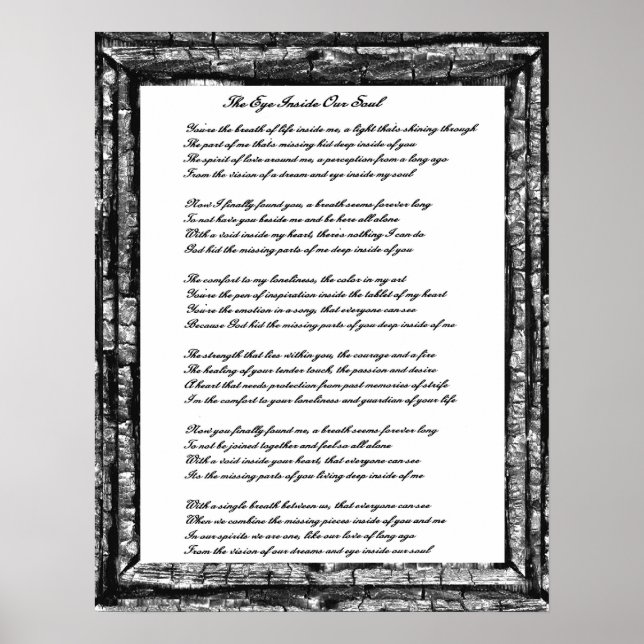 The Eye Inside Our Soul
You're the breath of life inside me, a light that's shining through
The part of me that's missing hid deep inside of you
The spirit of love around me, a perception from a long ago
From the vision of a dream and eye inside my soul
Now I finally found you, a breath seems forever long
To not have you beside me and be here all alone
With a void inside my heart, there's nothing I can do
God hid the missing parts of me deep inside of you
The comfort to my loneliness, the color in my art
You're the pen of inspiration inside the tablet of my heart
You're the emotion in a song, that everyone can see
Because God hid the missing parts of you deep inside of me
The strength that lies within you, the courage and a fire
The healing of your tender touch, the passion and desire
A heart that needs protection from past memories of strife
I'm the comfort to your loneliness and guardian of your life
Now you finally found me, a breath seems forever long
To not be joined together and feel so all alone
With a void inside your heart, that everyone can see
Its the missing parts of you living deep inside of me
With a single breath between us, that everyone can see
When we combine the missing pieces inside of you and me
In our spirits we are one, like our love of long ago
From the vision of our dreams and eye inside our soul